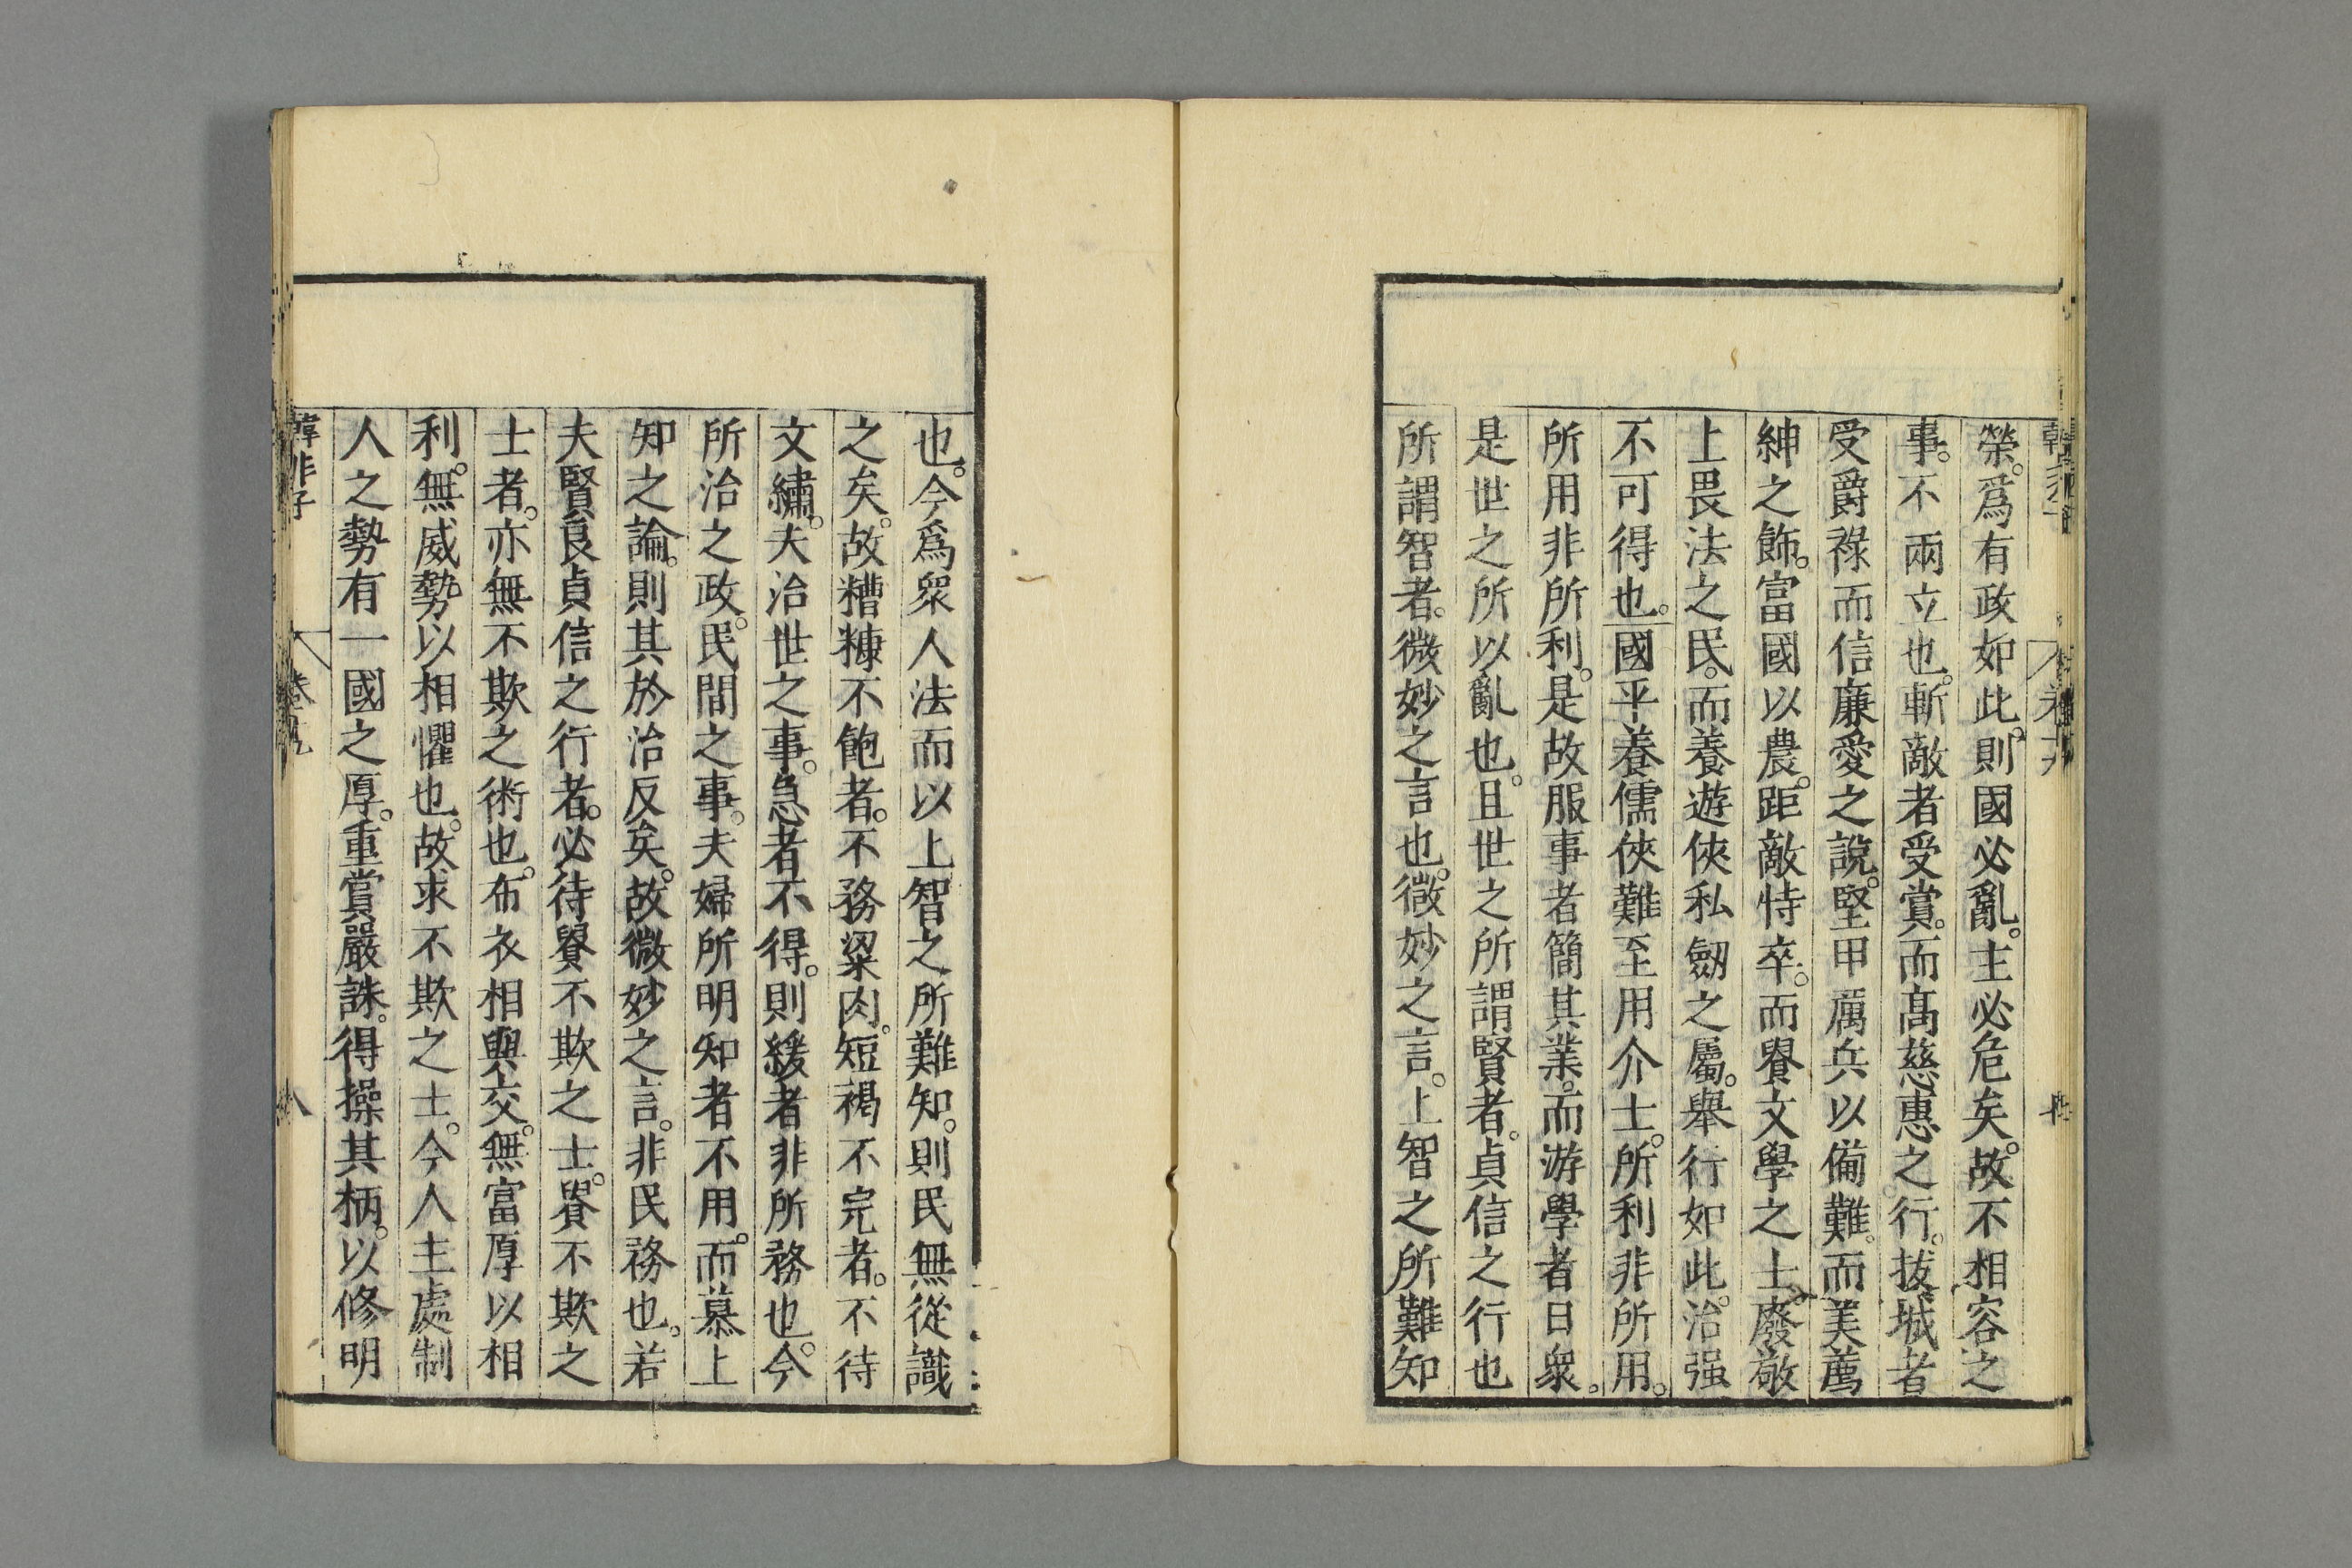 榮。爲有政如此。則國必亂。主必危矣。故不相容之
事。不兩立也。斬敵者受賞。而高慈惠之行。拔城者
受爵祿而信廉愛之說。堅甲厲兵以備難。而美薦
紳之飾。富國以農。距敵恃卒。而譽文學之士。廢敬
上畏法之民。而養遊俠私劒之屬。舉行如此。治强
不可得也。國平養儒俠難至用介士。所利非所用。
所用非所利。是故服事者簡其業。而游學者日衆。
是世之所以亂也。且世之所謂賢者。貞信之行也
所謂智者。微妙之言也。微妙之言。上智之所難知
也。今爲衆人法而以上智之所難知。則民無從識
之矣。故糟糠不飽者。不務粱肉。短褐不完者。不待
文繡。夫治世之事。急者不得。則緩者非所務也。今
所治之政。民間之事。夫婦所明知者不用。而慕上
知之論。則其於治反矣。故微妙之言。非民務也。若
夫賢良貞信之行者。必待貴不欺之士。貴不欺之
士者。亦無不欺之術也。布衣相與交。無富厚以相
利。無威勢以相懼也。故求不欺之士。今人主處制
人之勢有一國之厚。重賞嚴誅。得操其柄。以修明
韓非子 卷九 八